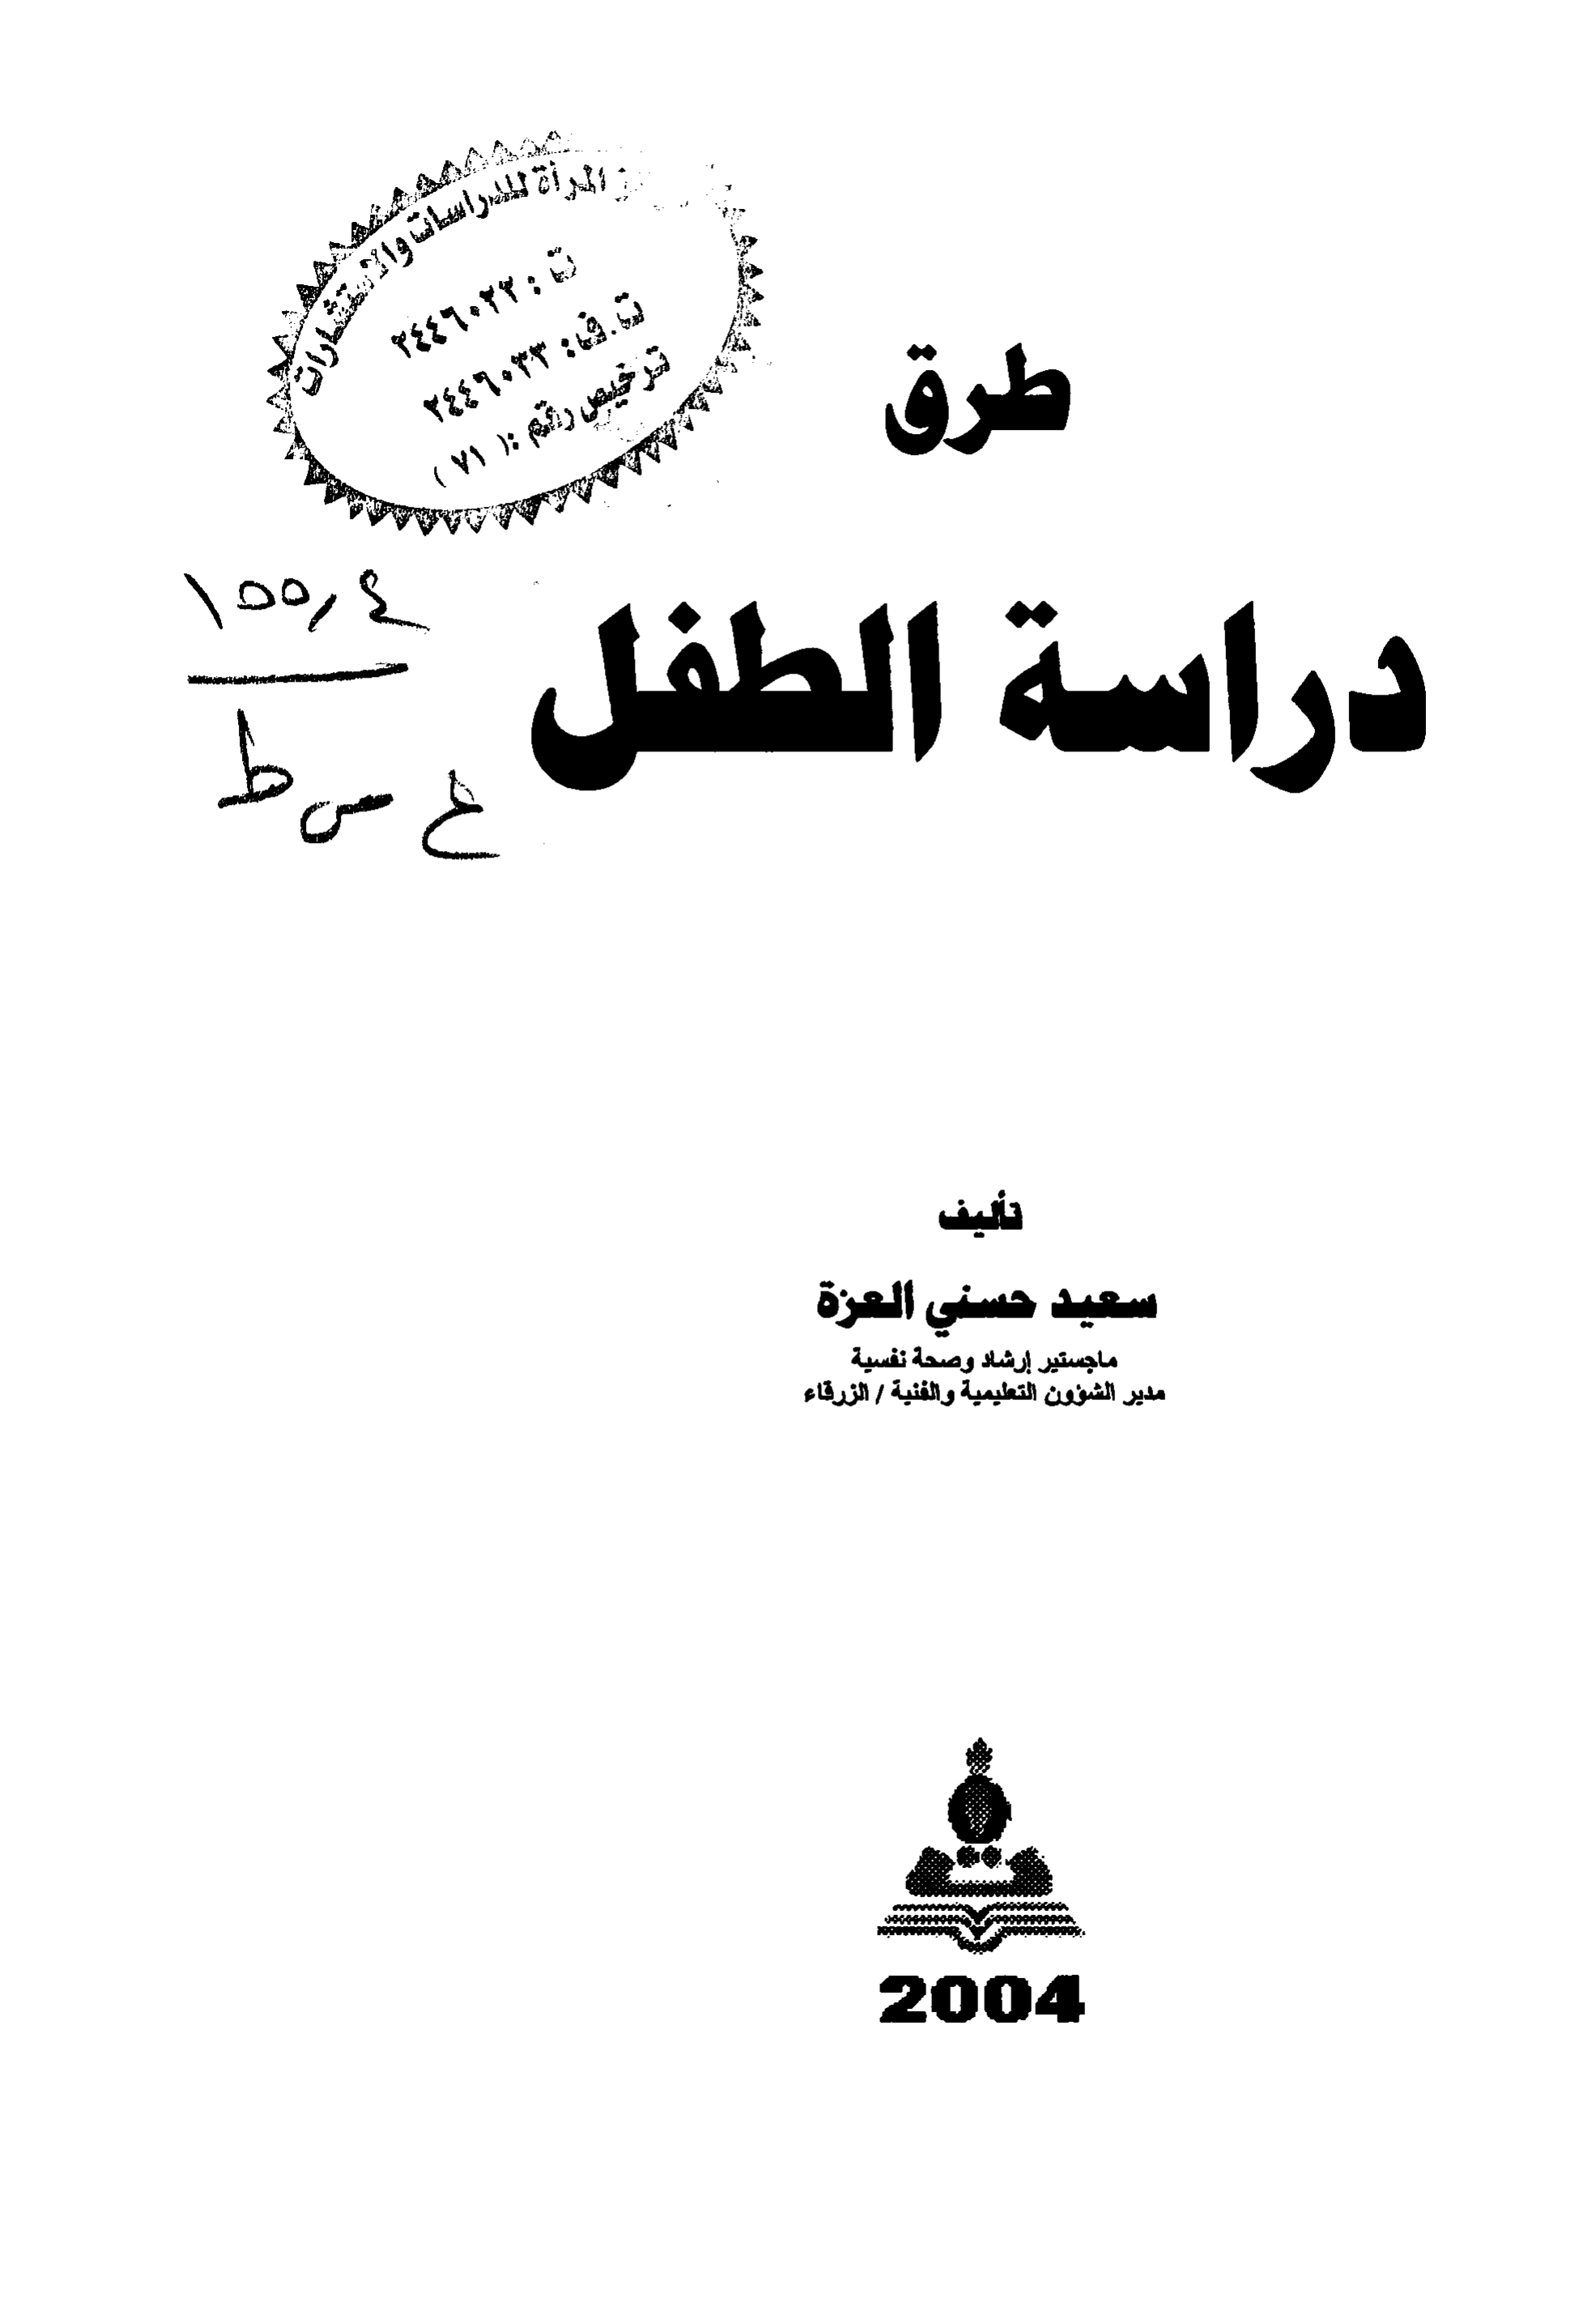 المرأة للدراسات والاستشارات
ت : ٢٤٤٦٠٢٢
ت.ف: ٢٤٤٦٠٣٣
ترخيص رقم :( ٧١ )
طرق
١٥٥,٤
دراسة الطفل
تأليف
سعيد حسني العزة
ماجستير إرشاد وصحة نفسية
مدير الشؤون التعليمية والفنية / الزرقاء
2004